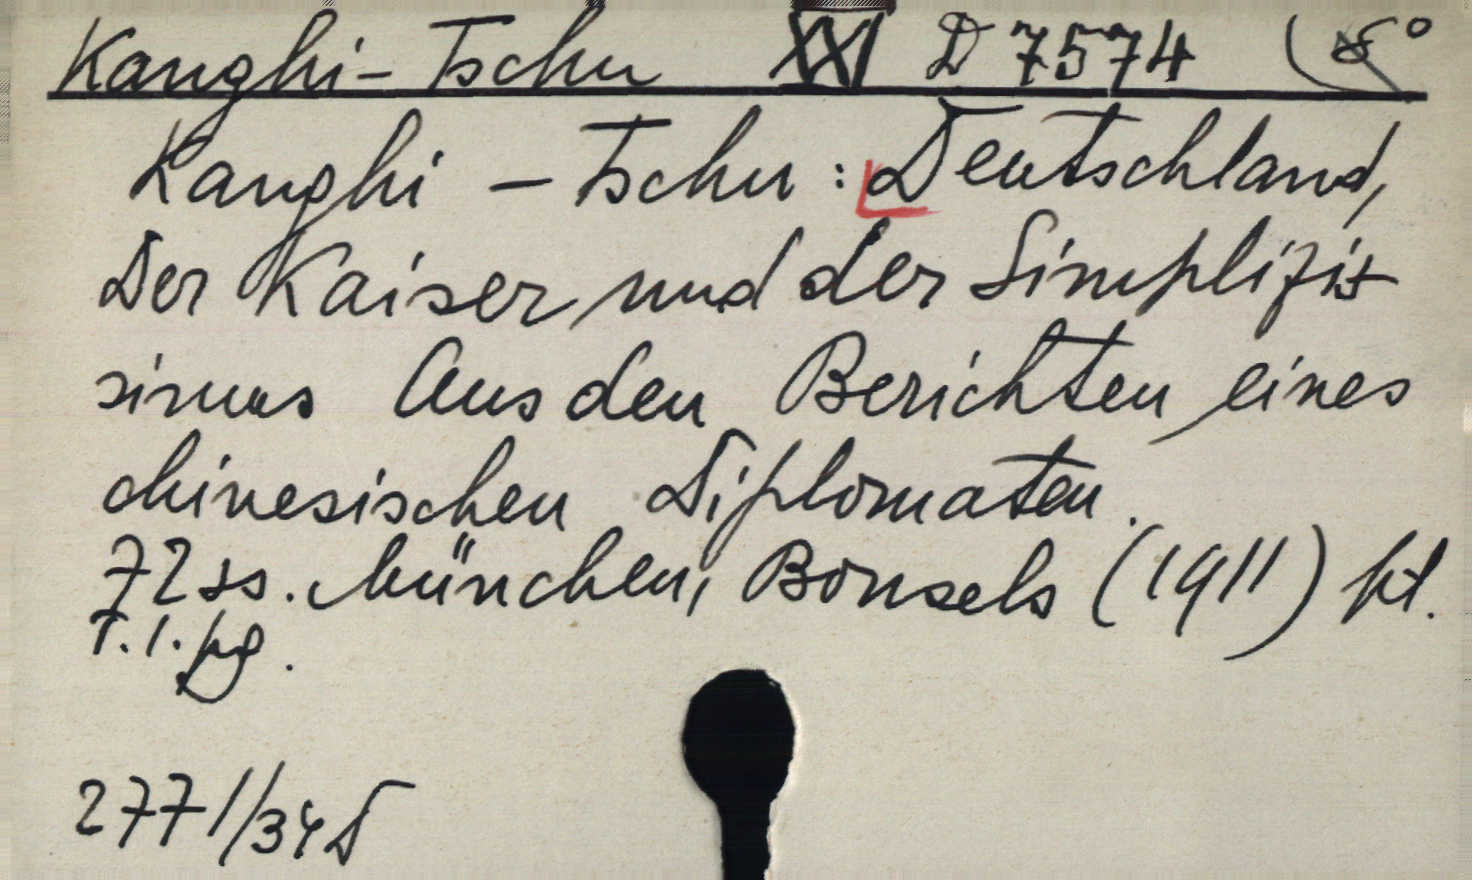 Kanghi-Tschu XXI D 7574 (8°
Kanghi - Tschu : Deutschland,
Der Kaiser und der Simplizis
simus Aus den Berichten eines
chinesischen Diplomaten.
72 ss. München, Bonsels (1911) kt.
T. l. pg.
2771/34 D